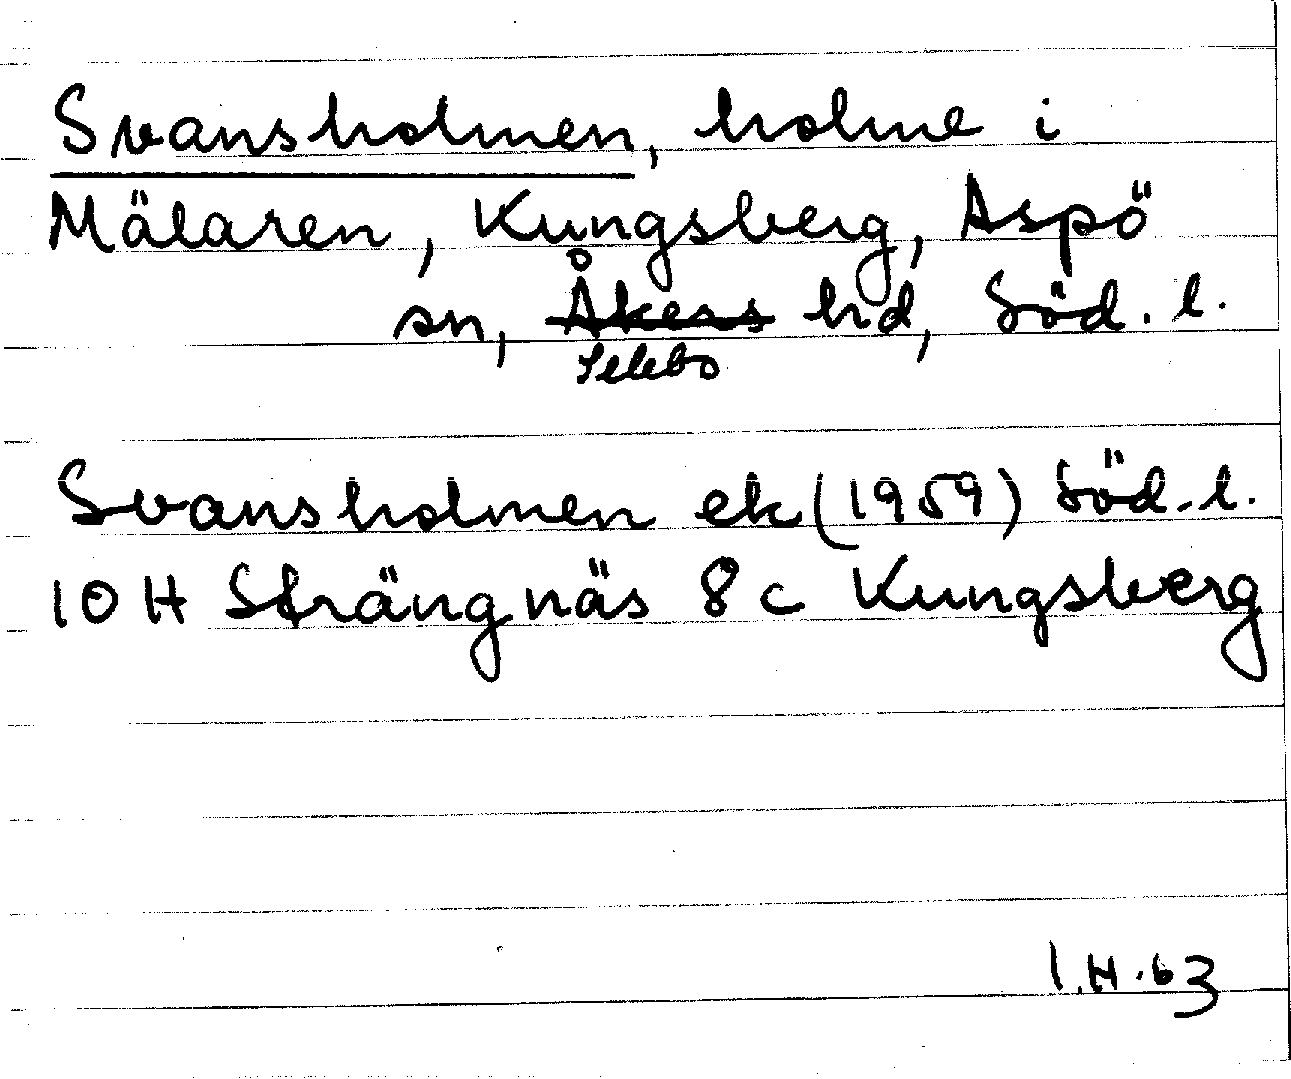 Svansholmen, holme i
Mälaren, Kungsberg, Aspö
sn, Åkers hd, Söd. l.
Selebo
Svansholmen ek (1959) Söd. l.
10 H Strängnäs 8 c Kungsberg
I.H.63